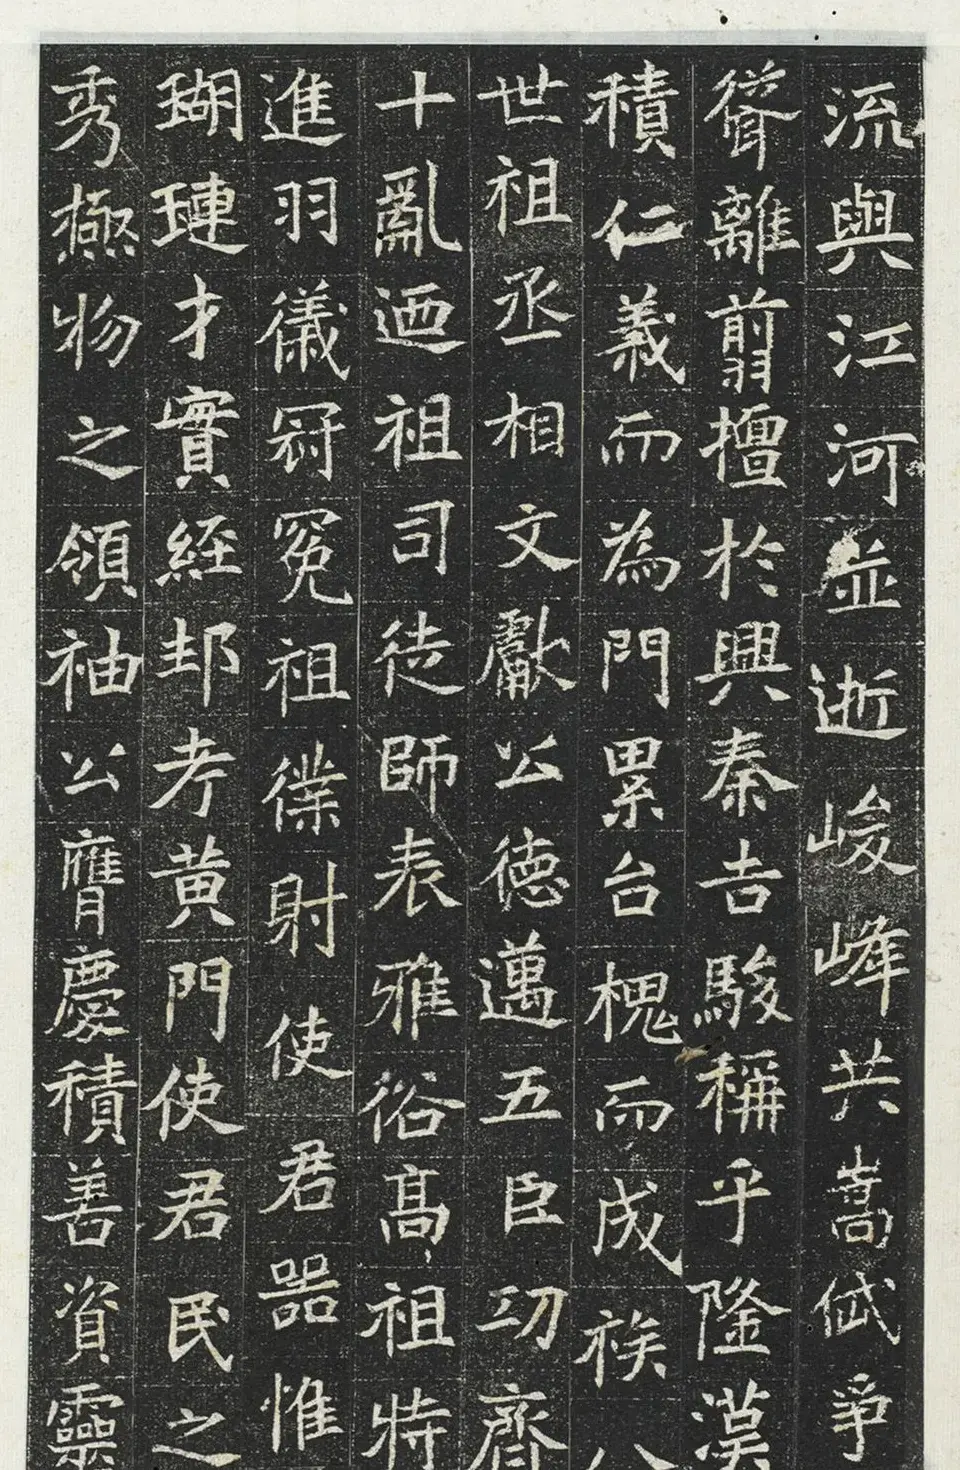 流與江河並逝峻峰共嵩岱爭
聳離翦擅於興秦吉駿稱乎隆漢
積仁義而為門累台槐而成族八
世祖丞相文獻公德邁五臣功齊
十亂迺祖司徒師表雅俗高祖特
進羽儀冠冕祖僕射使君器惟
瑚璉才實經邦考黃門使君民之
秀極物之領袖公膺慶積善資靈